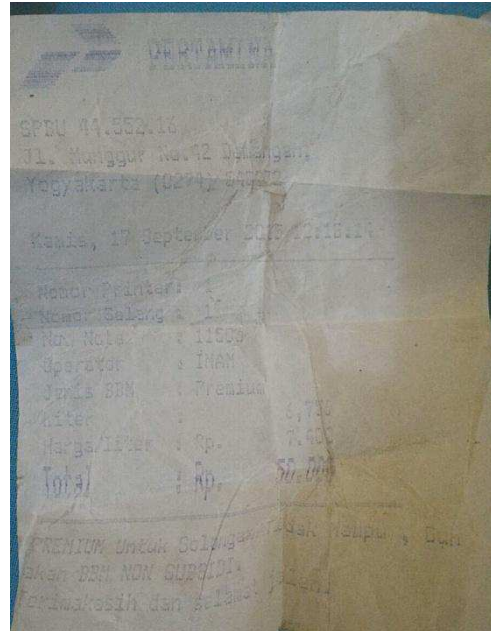 PERTAMINA
SPBU 44.552.16
Jl. Munggur No.42 Demangan,
Yogyakarta (0274)
Kamis, 17 September 2015
Nomor Printer: 1
Nomor Selang : 1
No. Nota : 11500
Operator : IMAM
Jenis BBM : Premium
Liter :
Harga/Liter : Rp. 7.400
Total : Rp. 50.000
PREMIUM Untuk Golongan Tidak Mampu , Gun
akan BBM NON SUBSIDI.
Terimakasih dan Selamat Jalan